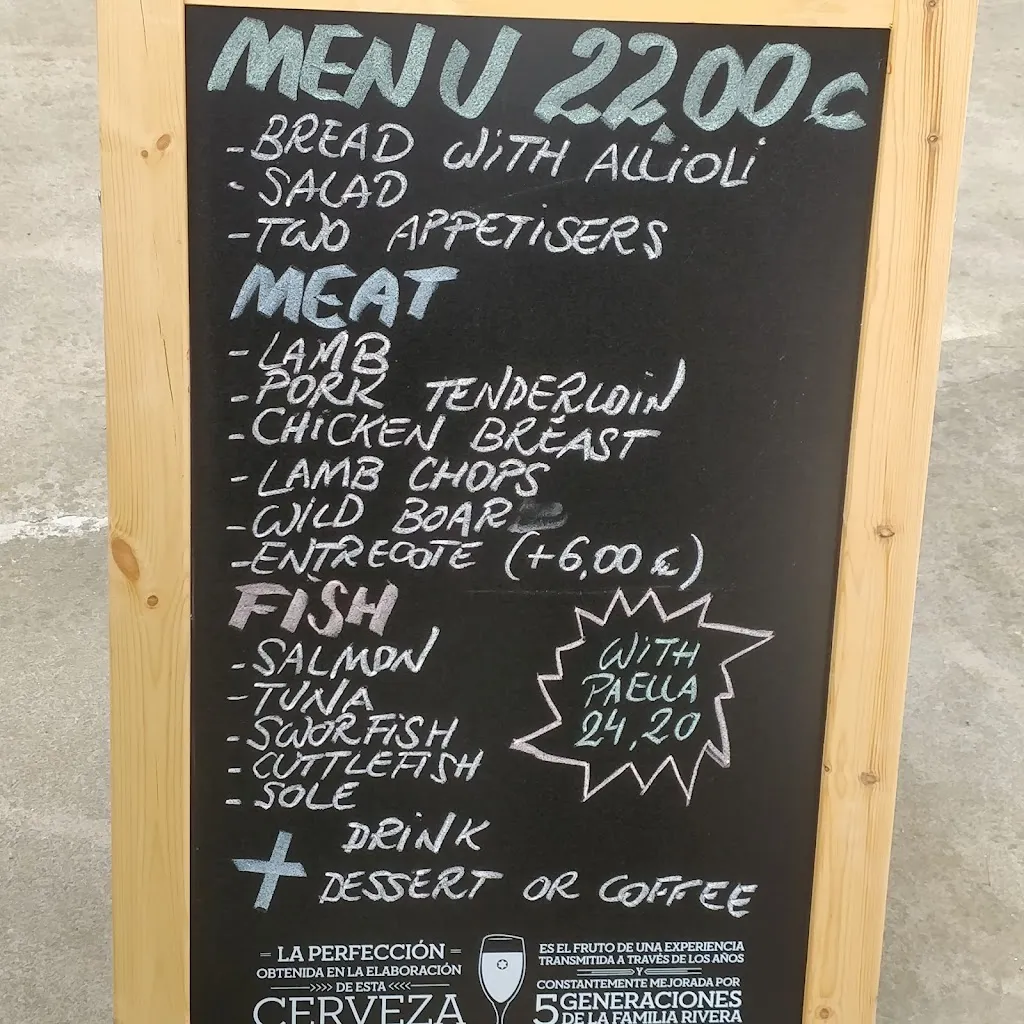 MENU 22,00 €
-BREAD WITH ALLIOLI
-SALAD
-TWO APPETISERS
MEAT
-LAMB
-PORK TENDERLOIN
-CHICKEN BREAST
-LAMB CHOPS
-WILD BOAR
-ENTRECOTE (+6,00 €)
FISH
-SALMON
-TUNA
-SWORFISH
-CUTTLEFISH
-SOLE
WITH
PAELLA
24,20
+ DRINK
DESSERT OR COFFEE
LA PERFECCIÓN
OBTENIDA EN LA ELABORACIÓN
DE ESTA
CERVEZA
ES EL FRUTO DE UNA EXPERIENCIA
TRANSMITIDA A TRAVÉS DE LOS AÑOS
Y
CONSTANTEMENTE MEJORADA POR
5 GENERACIONES
DE LA FAMILIA RIVERA